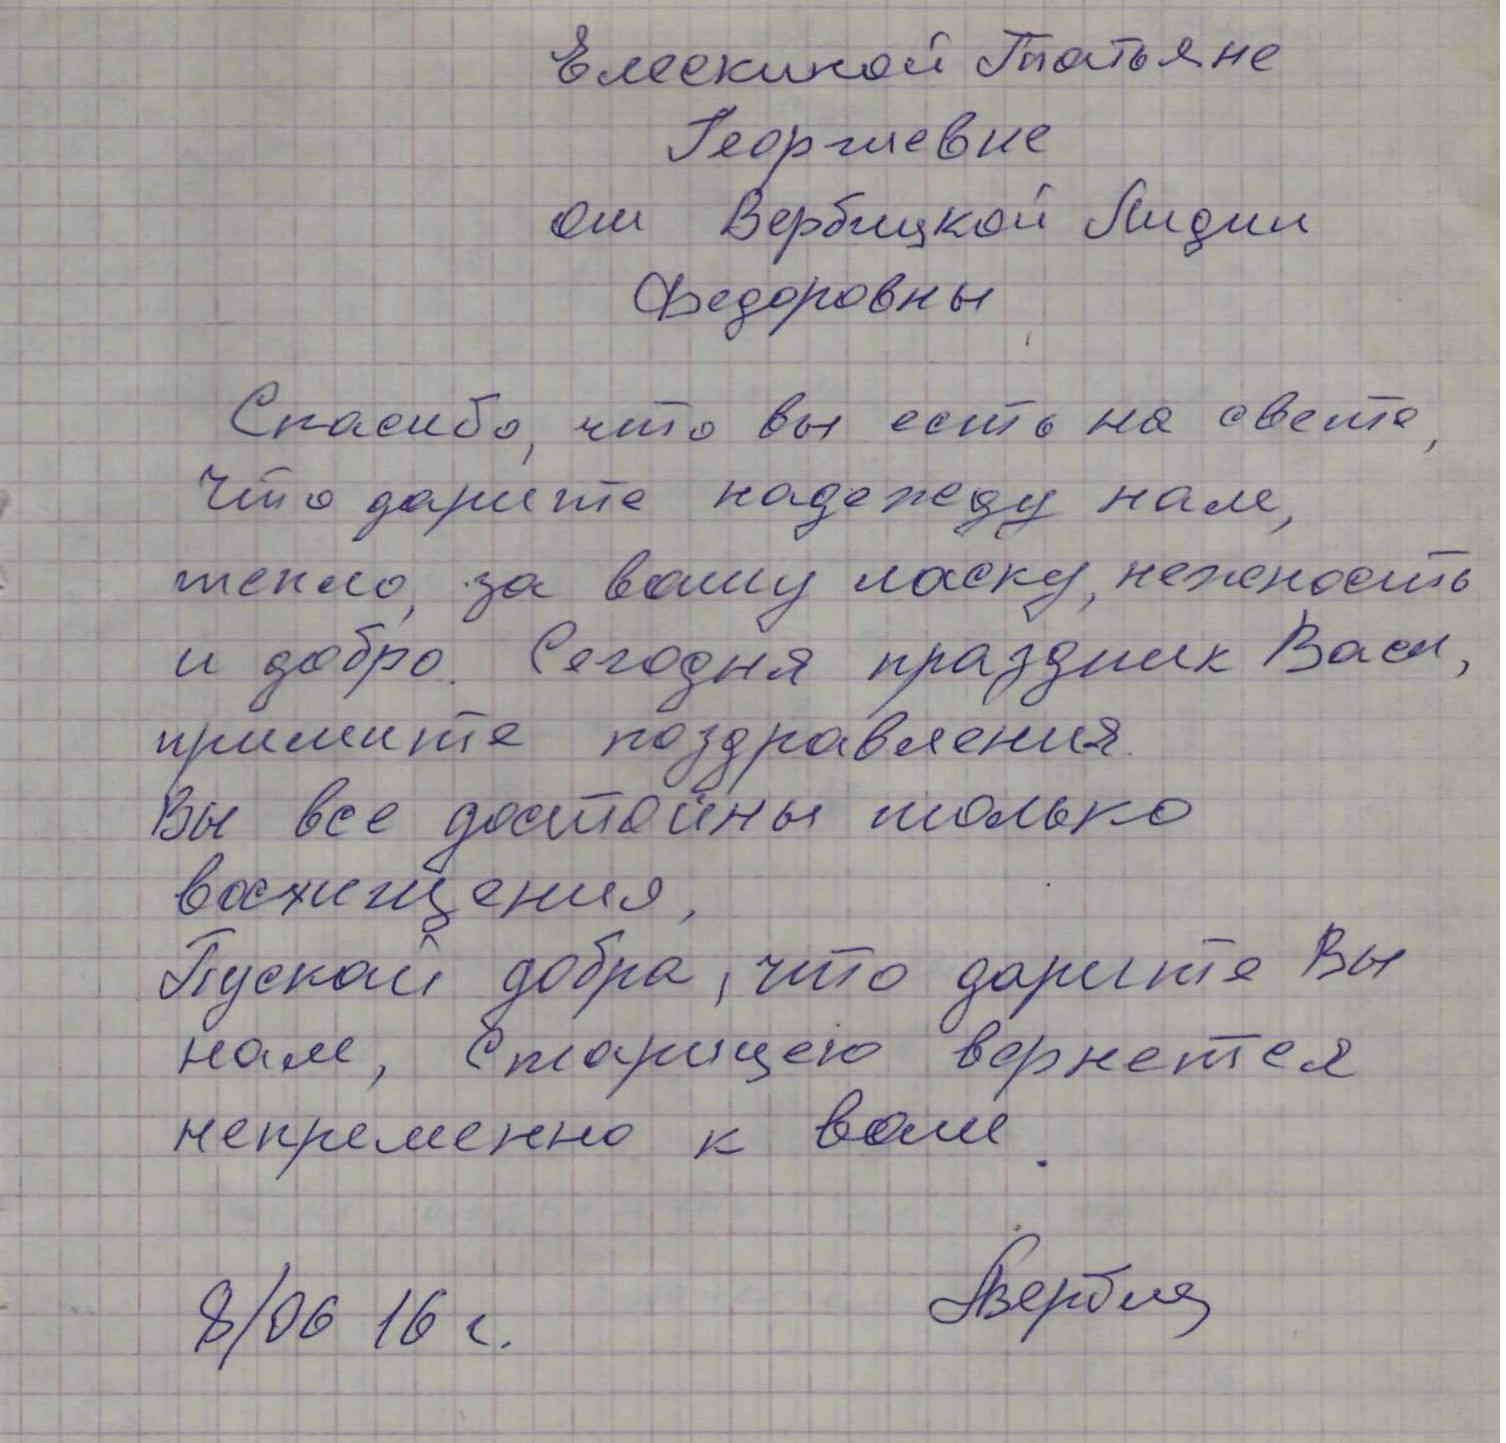 Елескиной Татьяне
Георгиевне
от Вербицкой Лидии
Федоровны
Спасибо, что вы есть на свете,
Что дарите надежду нам,
тепло, за вашу ласку, нежность
и добро. Сегодня праздник Ваш,
примите поздравления.
Вы все достойны только
восхищения,
Пускай добра, что дарите Вы
нам, Сторицею вернется
непременно к вам.
8/06 16 г.